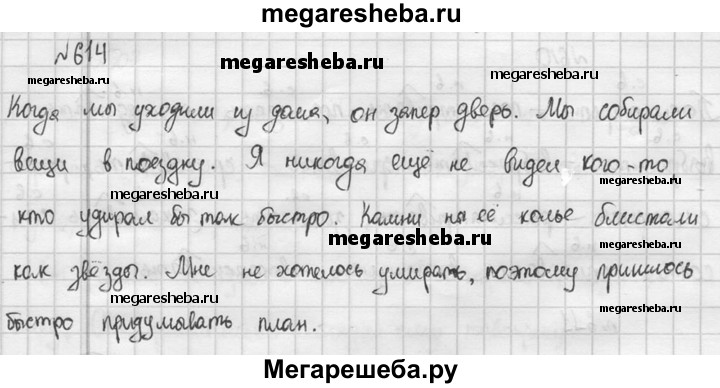 megaresheba.ru
№614
megaresheba.ru
megaresheba.ru
megaresheba.ru
Когда мы уходили из дома, он запер дверь. Мы собирали
вещи в поездку. Я никогда ещё не видел кого-то,
megaresheba.ru
megaresheba.ru
кто удирал бы так быстро. Камни на её колье блистали
megaresheba.ru
megaresheba.ru
как звёзды. Мне не хотелось умирать, поэтому пришлось
megaresheba.ru
быстро придумывать план.
megaresheba.ru
Мегарешеба.ру